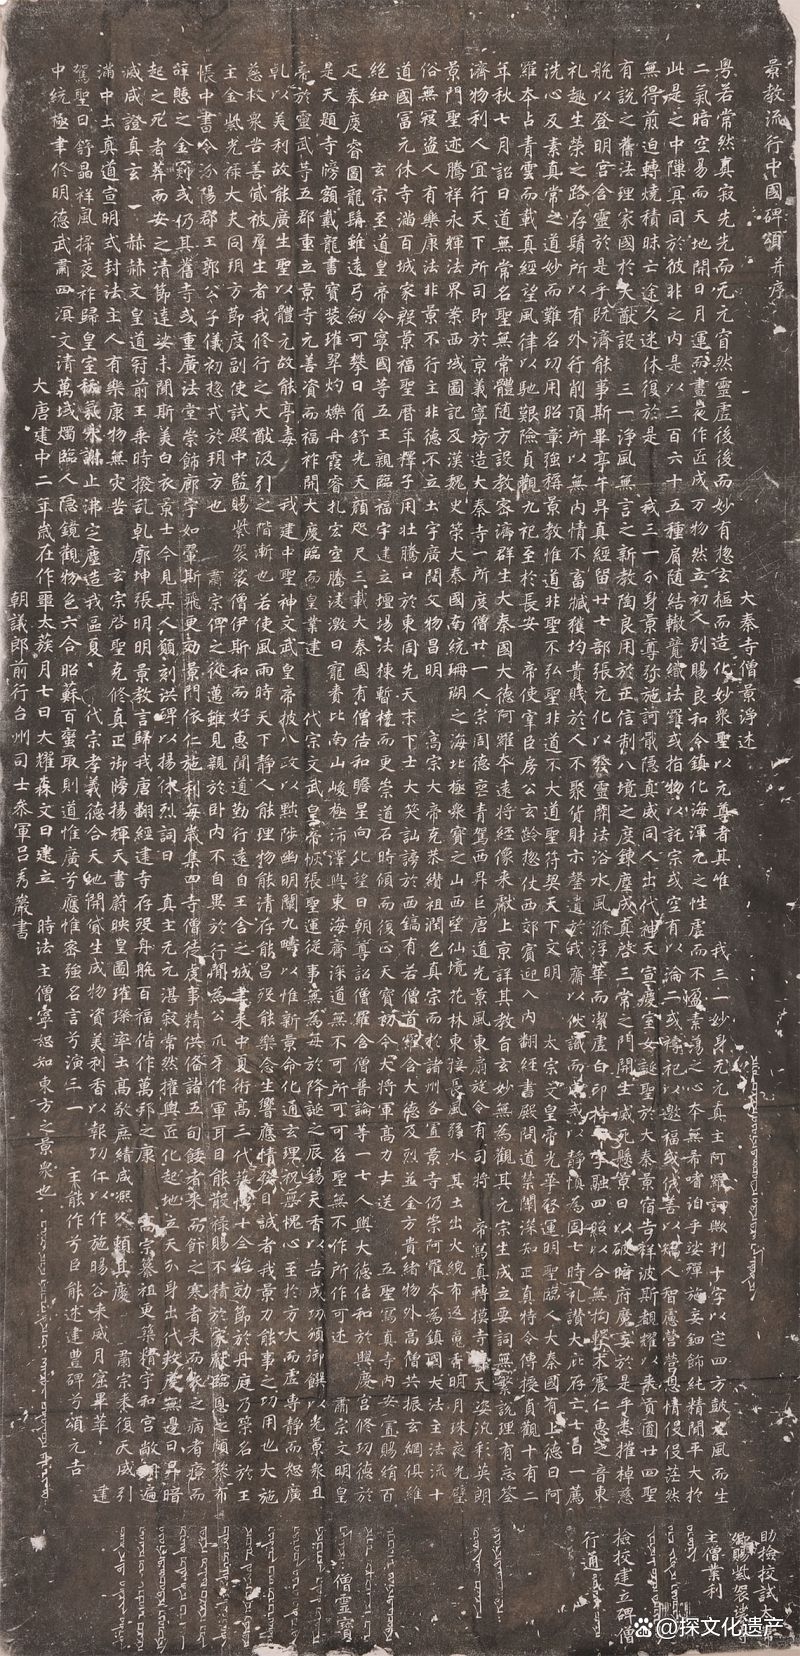 景教流行中國碑頌并序
大秦寺僧景淨述
粤若常然真寂先先而无元窅然靈虛後後而妙有惣玄樞而造化妙衆聖以元尊者其唯 我三一妙身无元真主阿羅訶歟判十字以定四方鼓元風而生
二氣暗空易而天地開日月運而晝夜作匠成万物然立初人別賜良和令鎮化海渾元之性虛而不盈素蕩之心本無希嗜洎乎娑殫施妄鈿飾純精閒平大於
此是之中隟冥同於彼非之内是以三百六十五種肩随結轍競織法羅或指物以託宗或空有以淪二或禱祀以邀福或伐善以矯人智慮營營恩情伇伇茫然
無得煎迫轉燒積昧亡途久迷休復於是 我三一分身景尊弥施訶戢隱真威同人出代神天宣慶室女誕聖於大秦景宿告祥波斯覩耀以来貢圓廿四聖
有説之舊法理家國於大猷設 三一淨風無言之新教陶良用於正信制八境之度鍊塵成真啓三常之門開生滅死懸景日以破暗府魔妄於是乎悉摧棹慈
舩以登明宮含靈於是乎既濟能事斯畢亭午昇真經留廿七部張元化以發靈關法浴水風滌浮華而潔虛白印持十字融四照以合無拘擊木震仁惠之音東
礼趣生榮之路存鬚所以有外行削頂所以無内情不畜臧獲均貴賤於人不聚貨財示罄遺於我齋以伏識而成戒以靜慎為固七時礼讚大庇存亡七日一薦
洗心反素真常之道妙而難名功用昭彰強稱景教惟道非聖不弘聖非道不大道聖符契天下文明 太宗文皇帝光華啓運明聖臨人大秦國有上德曰阿
羅本占青雲而載真經望風律以馳艱險貞觀九祀至於長安 帝使宰臣房公玄齡惣仗西郊賓迎入内翻經書殿問道禁闈深知正真特令傳授貞觀十有二
年秋七月詔曰道無常名聖無常體随方設教密濟群生大秦國大德阿羅本遠將經像来獻上京詳其教旨玄妙無為觀其元宗生成立要詞無繁説理有忘筌
濟物利人宜行天下所司即於京義寧坊造大秦寺一所度僧廿一人宗周德喪青駕西昇巨唐道光景風東扇旋令有司將 帝寫真轉摸寺壁天姿汎彩英朗
景門聖迹騰祥永輝法界案西域圖記及漢魏史策大秦國南統珊瑚之海北極衆寶之山西望仙境花林東接長風弱水其土出火綄布返魂香明月珠夜光璧
俗無寇盗人有樂康法非景不行主非德不立土宇廣闊文物昌明 高宗大帝克恭纘祖潤色真宗而於諸州各置景寺仍崇阿羅本為鎮國大法主法流十
道國富元休寺滿百城家殷景福聖曆年釋子用壯騰口於東周先天末下士大笑訕謗於西鎬有若僧首羅含大德及烈並金方貴緒物外高僧共振玄綱俱維
絶紐 玄宗至道皇帝令寧國等五王親臨福宇建立壇場法棟暫橈而更崇道石時傾而復正天寶初令大將軍高力士送 五聖寫真寺内安置賜絹百
疋奉慶睿圖龍髯雖遠弓劒可攀日角舒光天顔咫尺三載大秦國有僧佶和瞻星向化望日朝尊詔僧羅含僧普論等一七人與大德佶和於興慶宮修功德於
是天題寺牓額戴龍書寶裝璀翠灼爍丹霞睿扎宏空騰淩激日寵賚比南山峻極沛澤與東海齊深道無不可所可可名聖無不作所作可述 肅宗文明皇
帝於靈武等五郡重立景寺元善資而福祚開大慶臨而皇業建 代宗文武皇帝恢張聖運従事無為每於降誕之辰錫天香以告成功頒御饌以光景衆且
乹以美利故能廣生聖以體元故能亭毒 我建中聖神文武皇帝披八政以黜陟幽明闡九疇以惟新景命化通玄理祝無愧心至於方大而虛專靜而恕廣
慈救衆苦善貸被群生者我修行之大猷汲引之階漸也若使風雨時天下靜人能理物能清存能昌歿能樂念生響應情發目誠者我景力能事之功用也大施
主金紫光禄大夫同朔方節度副使試殿中監賜紫袈裟僧伊斯和而好惠聞道勤行遠自王舍之城聿来中夏術高三代藝博十全始効節於丹庭乃策名於王
帳中書令汾陽郡王郭公子儀初惣戎於朔方也 肅宗俾之從邁雖見親於卧内不自異於行間為公爪牙作軍耳目能散禄賜不積於家獻臨恩之頗黎布
辞憩之金罽或仍其舊寺或重廣法堂崇飾廊宇如翬斯飛更効景門依仁施利每歳集四寺僧徒虔事精供備諸五旬餧者来而飰之寒者来而衣之病者療而
起之死者葬而安之清節達娑未聞斯美白衣景士今見其人願刻洪碑以揚休烈詞曰 真主无元湛寂常然權輿匠化起地立天分身出代救度無邊日昇暗
滅咸證真玄 赫赫文皇道冠前王乘時撥乱乹廓坤張明明景教言歸我唐翻經建寺存歿舟航百福偕作萬邦之康 高宗纂祖更築精宇和宮敞朗遍
滿中土真道宣明式封法主人有樂康物無灾苦 玄宗啓聖克修真正御牓揚輝天書蔚映皇圖璀璨率土高敬庶績咸熙人賴其慶 肅宗来復天威引
駕聖日舒晶祥風掃夜祚歸皇室祅氛永謝止沸定塵造我區夏 代宗孝義德合天地開貸生成物資美利香以報功仁以作施暘谷来威月窟畢萃 建
中統極聿修明德武肅四溟文清萬域燭臨人隱鏡觀物色六合昭蘇百蠻取則道惟廣兮應惟密強名言兮演三一 主能作兮臣能述建豐碑兮頌元吉
大唐建中二年歳在作噩太蔟月七日大耀森文日建立 時法主僧寧恕知東方之景衆也
朝議郎前行台州司士參軍呂秀巖書
助撿挍試太常
卿賜紫袈裟寺
主僧業利
撿挍建立碑僧
行通
僧靈寶
@探文化遗产